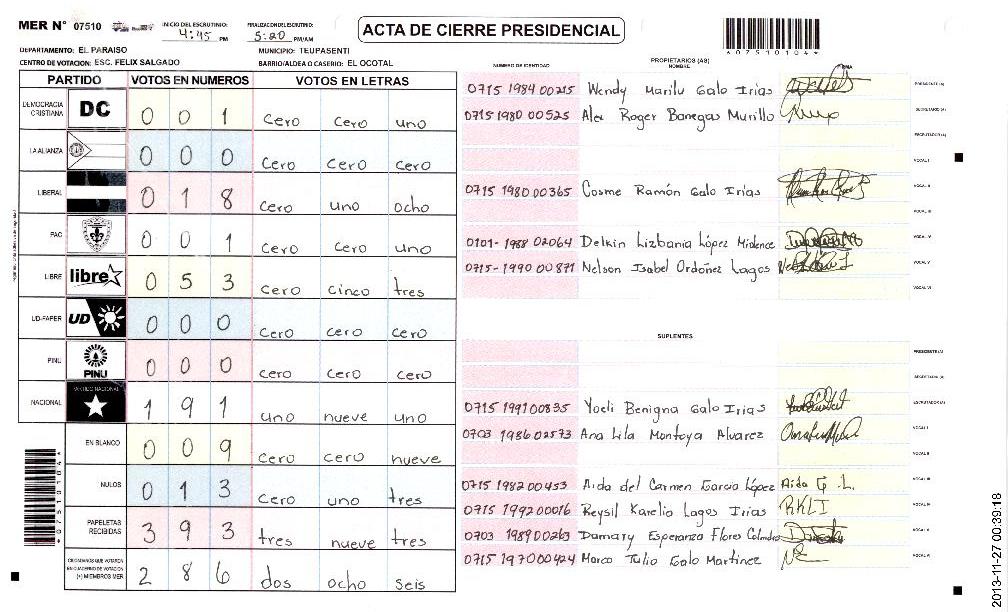 MER N° 07510
INICIO DEL ESCRUTINIO: 4:45 PM
FINALIZACION DEL ESCRUTINIO: 5:20 PM/AM
ACTA DE CIERRE PRESIDENCIAL
*07510104*
DEPARTAMENTO: EL PARAISO
MUNICIPIO: TEUPASENTI
CENTRO DE VOTACION: ESC. FELIX SALGADO
BARRIO/ALDEA O CASERIO: EL OCOTAL
PARTIDO VOTOS EN NUMEROS VOTOS EN LETRAS
DEMOCRACIA CRISTIANA DC 0 0 1 cero cero uno
LA ALIANZA 0 0 0 cero cero cero
LIBERAL 0 1 8 cero uno ocho
PAC 0 0 1 cero cero uno
LIBRE libre 0 5 3 cero cinco tres
UD-FAPER UD 0 0 0 cero cero cero
PINU PINU 0 0 0 cero cero cero
NACIONAL PARTIDO NACIONAL 1 9 1 uno nueve uno
EN BLANCO 0 0 9 cero cero nueve
NULOS 0 1 3 cero uno tres
PAPELETAS RECIBIDAS 3 9 3 tres nueve tres
CIUDADANOS QUE VOTARON EN CUADERNO DE VOTACION (+) MIEMBROS MER 2 8 6 dos ocho seis
*07510104*
NUMERO DE IDENTIDAD
PROPIETARIOS (AS)
NOMBRE
0715 1984 00215 Wendy Marilu Galo Irias PRESIDENTE (A)
0715 1980 00525 Alex Roger Banegas Murillo SECRETARIO (A)
ESCRUTADOR (A)
VOCAL I
0715 1980 00365 Cosme Ramón Galo Irías VOCAL II
VOCAL III
0101-1988 02064 Delkin Lizbania López Midence VOCAL IV
0715-1990 00871 Nelson Isabel Ordóñez Lagos VOCAL V
VOCAL VI
SUPLENTES
PRESIDENTE (A)
SECRETARIO (A)
0715 1991 00835 Yoeli Benigna Galo Irías ESCRUTADOR (A)
0703 1986 02573 Ana Lila Montoya Alvarez VOCAL I
VOCAL II
0715 1982 00453 Aida del Carmen Garcia López Aida G .L. VOCAL III
0715 1992 00016 Reysil Karelio Lagos Irías RKLI VOCAL IV
0703 1989 00263 Damary Esperanza Flores VOCAL V
0715 1970 00424 Marco Tulio Galo Martinez VOCAL VI
2013-11-27 00:39:18